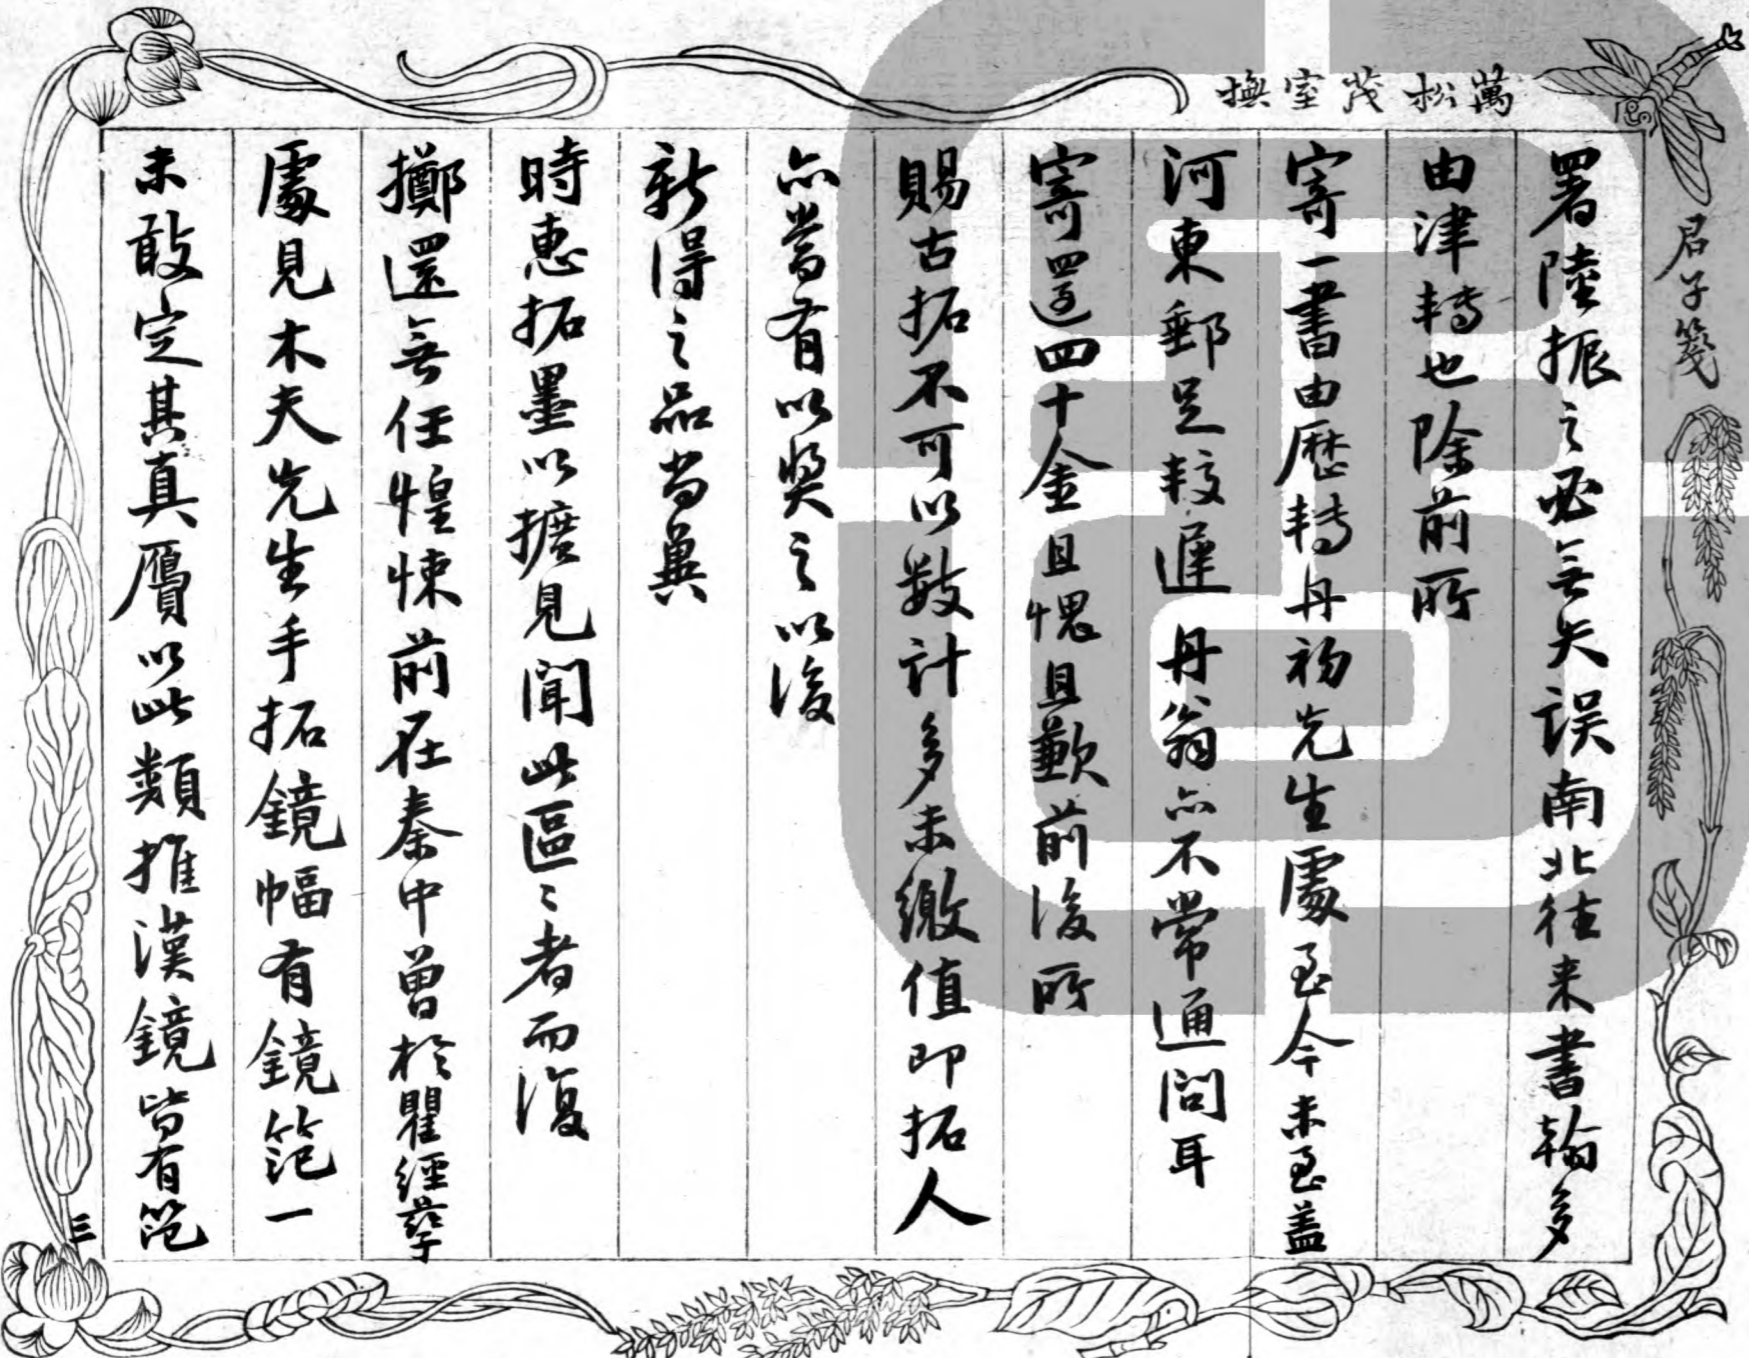 萬松茂室撫
君子箋
署陸振之必無失誤南北往来書翰多
由津轉也除前所
寄一書由歷轉丹初先生處至今未至盖
河東郵足較遲丹翁亦不常通問耳
寄還四十金且愧且歉前後所
賜古拓不可以數計多未繳值即拓人
亦當有以奬之以後
新得之品尚冀
時惠拓墨以擴見聞此區〻者而復
擲還無任惶悚前在秦中曾於瞿經孳
處見木夫先生手拓鏡幅有鏡笵一
未敢定其真贋以此類推漢鏡皆有笵
三